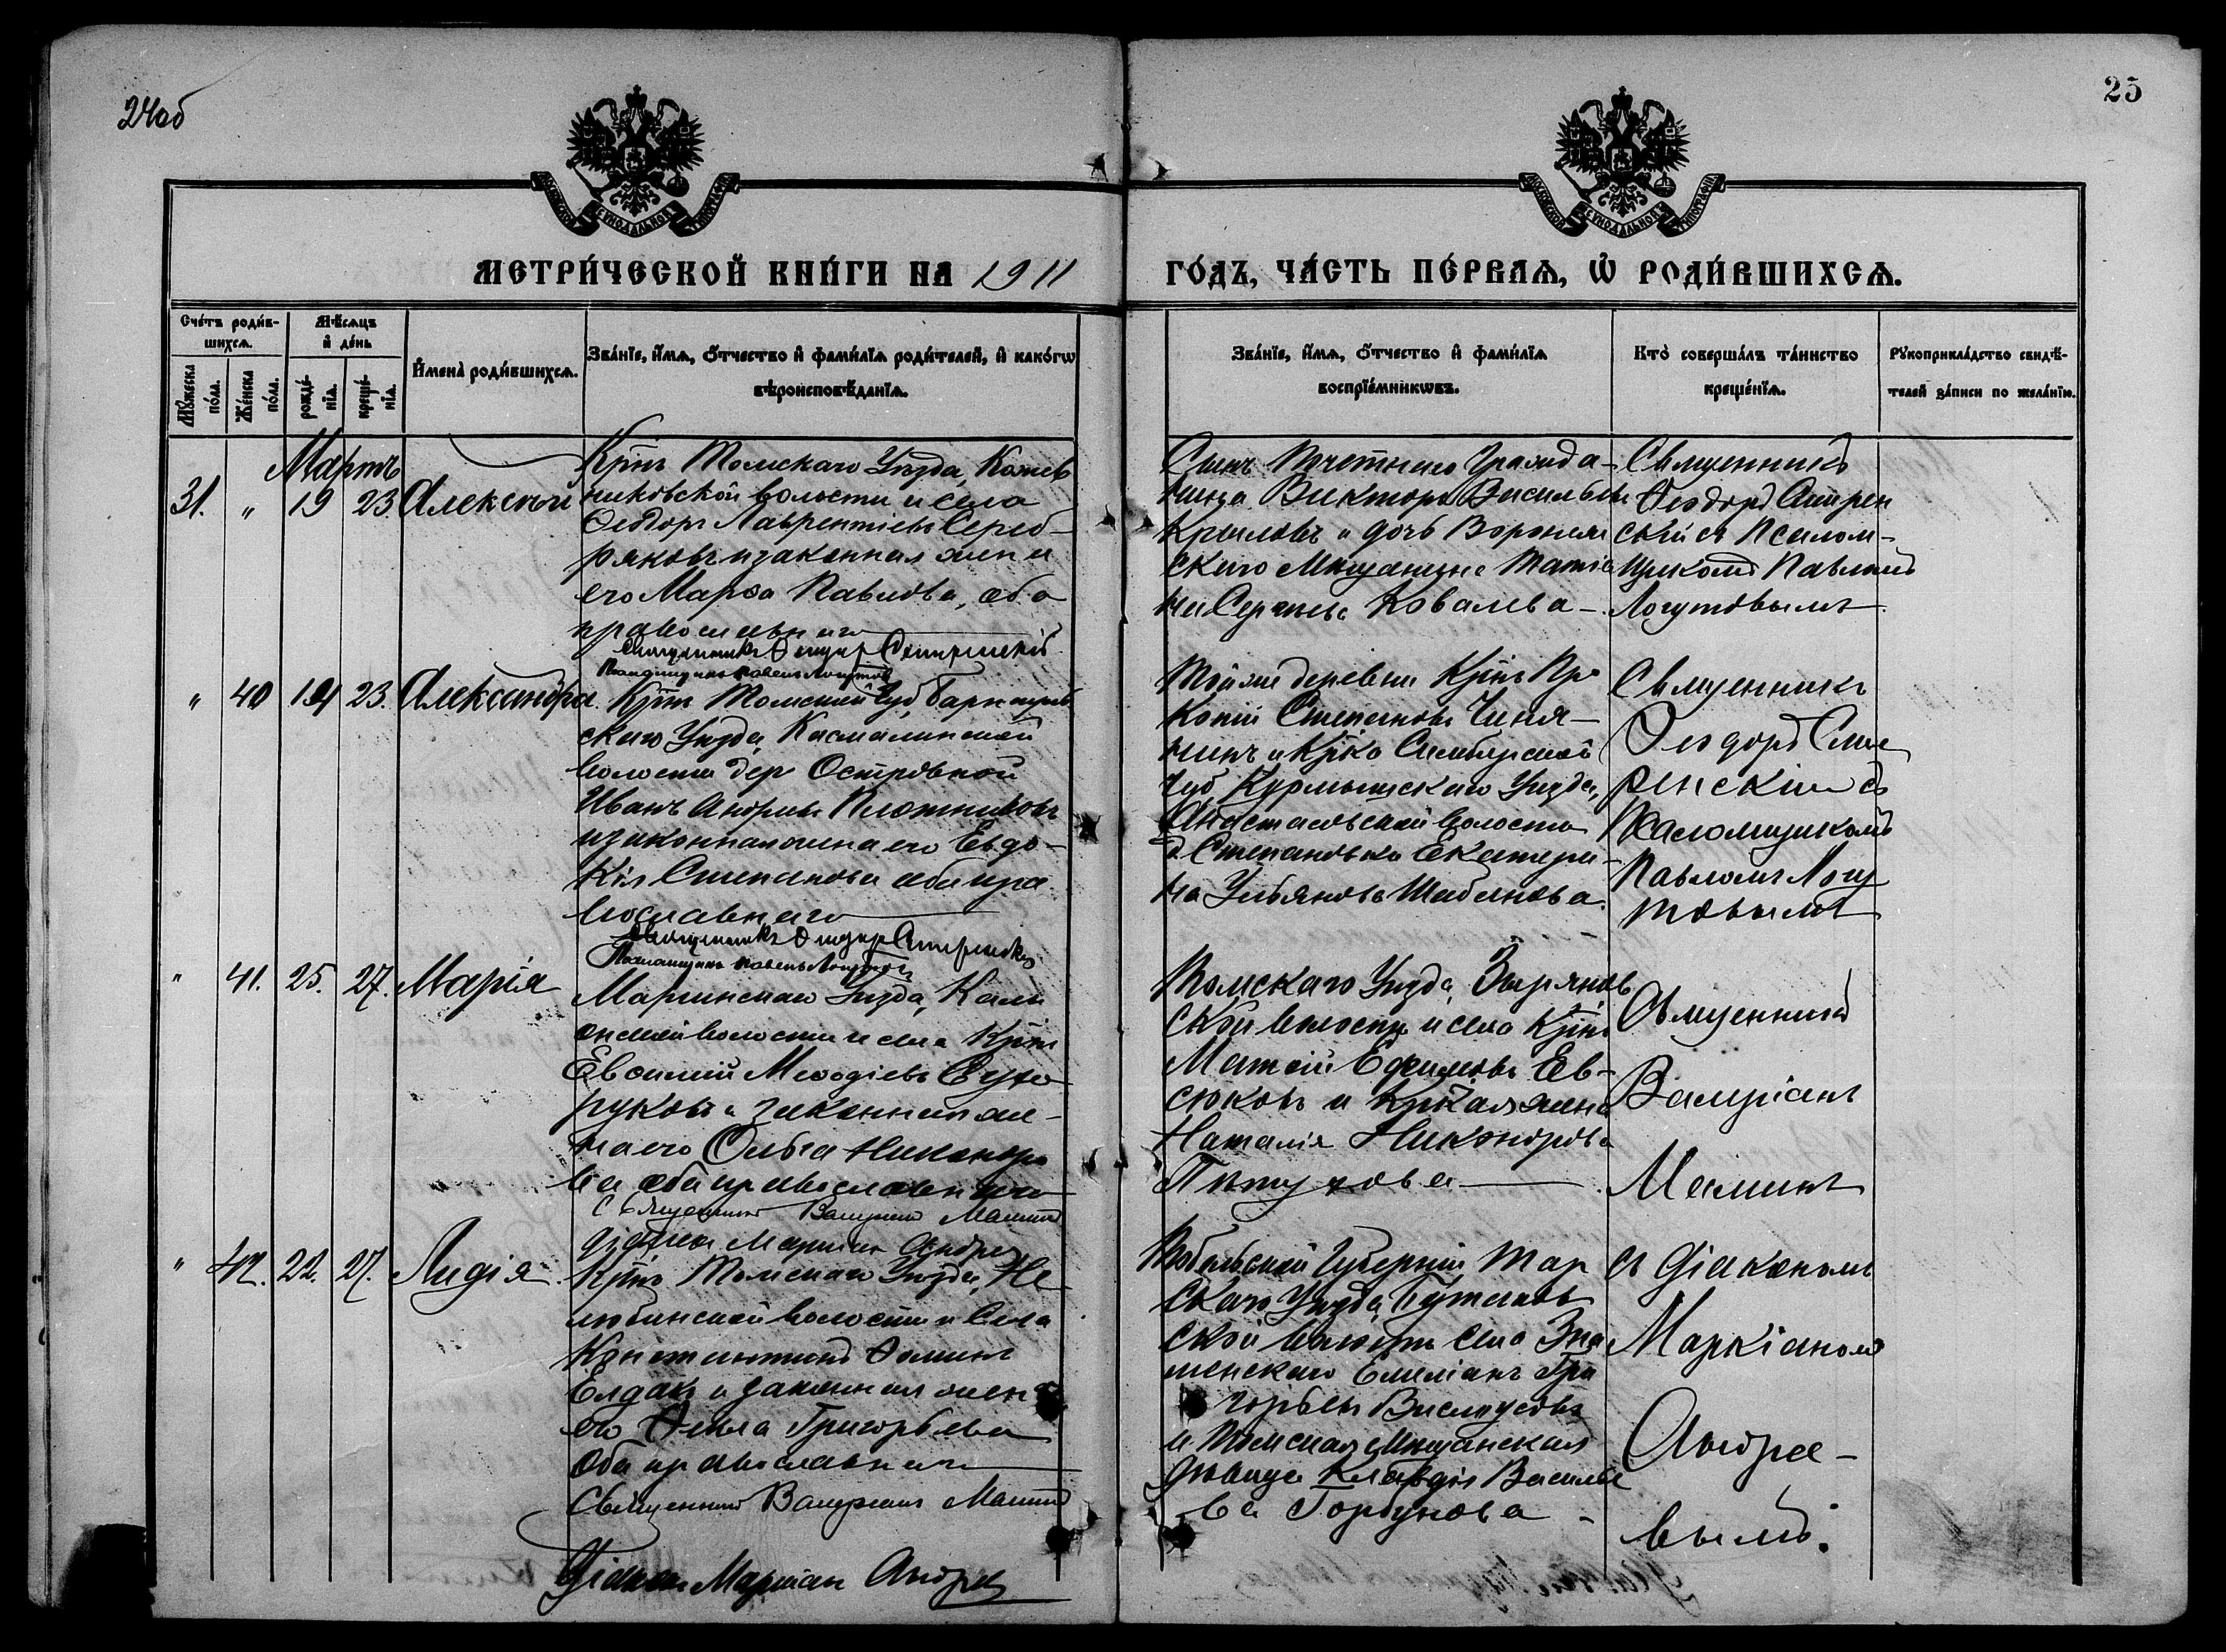 24об
25
МЕТРИ́ЧЕСКОЙ КНИ́ГИ НА 1911
ГО́ДЪ, ЧА́СТЬ ПЕ́РВАЯ, Ѡ РОДИ́ВШИХСЯ.
Сче́тъ роди́в-
шихся.
Мѣ́сяцъ
и де́нь
Имена̀ роди́вшихся.
Зва́нїе, и́мя, о́тчество и фами́лїя роди́телей, и како́гѡ
вѣроисповѣ́данїя.
Му́жеска
по́ла.
Же́нска
по́ла.
рожде́-
нїя.
креще́-
нїя.
Зва́нїе, и́мя, о́тчество и фами́лїя
воспрїе́мникѡвъ.
Кто̀ соверша́лъ та́инство
креще́нїя.
Рукоприкла́дство свидѣ́-
телей за́писи по жела́нїю.
Мартъ
31. " 19 23 Алексѣй
Крнъ Томскаго Уѣзда, Кожев
никовской волости и села
Ѳеодоръ Лаврентіевъ Сереб-
ряковъ и законная жена
его Марѳа Павлова, оба
православнаго
Священникъ Ѳеодоръ Смиренскій
Псаломщикъ Павелъ Логутовъ
Сынъ Почетнаго Гражда-
нина Викторъ Васильевъ
Крыловъ и дочь Воронеж
скаго Мещанина Татіа
на Сергѣева Ковалева
Священникъ
Ѳеодоръ Смирен
скій съ Псалом-
щикомъ Павломъ
Логутовымъ
" 40 19 23. Александра.
Крнъ Томской Губ, Барнауль
скаго Уѣзда, Касмалинской
волости дер. Островной
Иванъ Андреевъ Плотниковъ
и законная жена его Евдо-
кія Степанова оба пра
вославнаго
Священникъ Ѳеодоръ Смиренскій
Псаломщикъ Павелъ Логутовъ
Той же деревни Крнъ Про
копій Степановъ
и Крка Симбирской
губ Курмышскаго Уѣзда,
Анастасовской волости
д. Степановки Екатери-
на Ульянова Шабанова.
Священникъ
Ѳеодоръ Сми
ренскій съ
Псаломщикомъ
Павломъ Логу
товымъ
" 41. 25. 27. Марія
Маріинскаго Уѣзда,
волости и села Крнъ
Евѳимій Меѳодіевъ Сухо
руковъ и законная же-
на его Ольга Никаноро
ва оба православнаго
Священникъ Валеріанъ Маминъ
Діаконъ Маркіанъ Андреевъ
Томскаго Уѣзда, Зырянов
ской волости и села Крнъ
Матѳій Ефимовъ Ев-
сюковъ и Крская жена
Наталія Никанорова
Священникъ
Валеріанъ
Маминъ
" 42. 22. 27. Лидія
Крнъ Томскаго Уѣзда, Не
любинской волости и села
Константинъ Ѳоминъ
Елдакъ и законная жена
его Ѳекла Григорьева
Оба православнаго
Священникъ Валеріанъ Маминъ
Діаконъ Маркіанъ Андреевъ
Тобольской Губерніи Тар
скаго Уѣзда
ской волости село Зна
менскаго Емеліанъ Гри
горьевъ Вислоусовъ
и Томская Мещанская
дѣвица Клавдія Василье
ва Горбунова
съ Діакономъ
Маркіаномъ
Андрее-
вымъ.